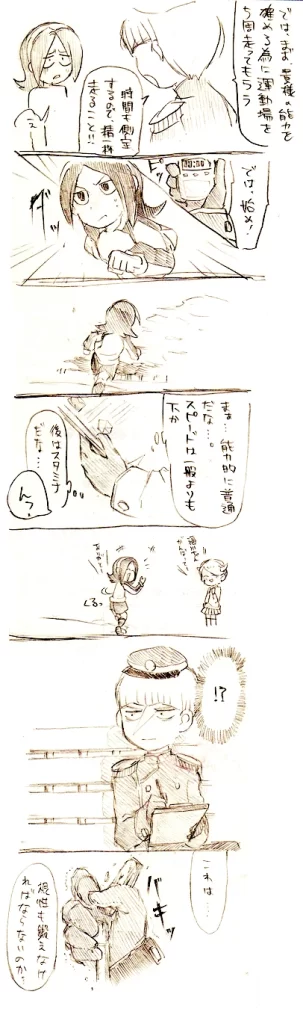 では、まず、貴様の能力を
確める為に運動場を
5周走ってもらう
時間も測定
するので、精神
走ること!!
え
では、始め!
ピッ
ダッ
まぁ…能力的に普通
だな…。
スピードは一般よりも
下か
後はスタミナ
だな…
ん?
くるっ
!?
これは…
バキッ
根性も鍛えなけ
ればならないのか?